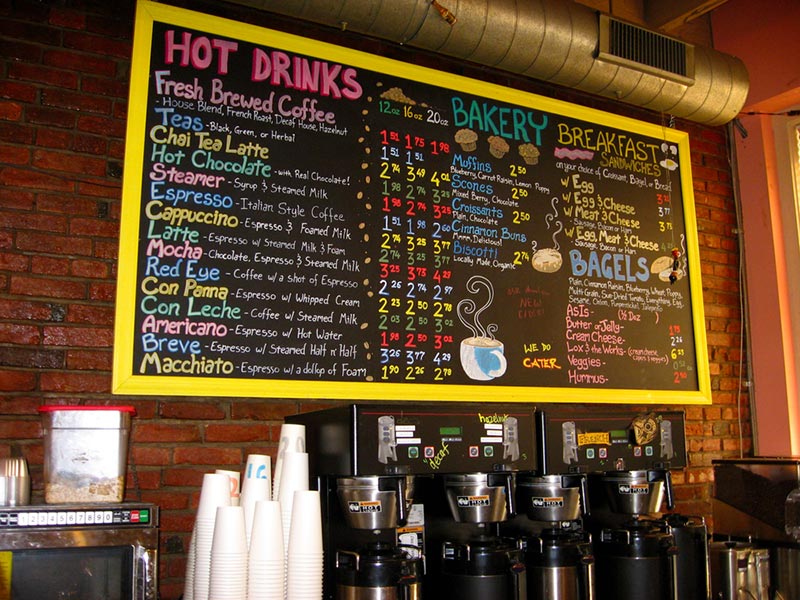 HOT DRINKS
Fresh Brewed Coffee
- House Blend, French Roast, Decaf House, Hazelnut
Teas - Black, Green, or Herbal
Chai Tea Latte
Hot Chocolate - with Real Chocolate!
Steamer - Syrup & Steamed Milk
Espresso - Italian Style Coffee
Cappuccino - Espresso & Foamed Milk
Latte - Espresso w/ Steamed Milk & Foam
Mocha - Chocolate, Espresso & Steamed Milk
Red Eye - Coffee w/ a shot of Espresso
Con Panna - Espresso w/ Whipped Cream
Con Leche - Coffee w/ Steamed Milk
Americano - Espresso w/ Hot Water
Breve - Espresso w/ Steamed Half n' Half
Macchiato - Espresso w/ a dollop of Foam
12oz 16oz 20oz
1.51 1.75 1.98
1.51 1.51
2.74 3.49
1.98 2.74
1.98 2.74 3.25
1.51 1.98 2.60
2.74 3.25 3.77
2.74 3.25 3.77
3.25 3.73 4.23
2.26 2.74 2.97
2.23 2.50 2.78
2.03 2.50
1.98 2.50
3.26 3.77 4.29
1.90 2.26 2.78
BAKERY
Muffins 2.50
Blueberry, Carrot Raisin, Lemon Poppy
Scones 2.50
Mixed Berry, Chocolate
Croissants 2.50
Plain, Chocolate
Cinnamon Buns
Mmm, Delicious!
Biscotti 2.74
Locally Made, Organic
WE DO
CATER
BREAKFAST
SANDWICHES
on your choice of Croissant, Bagel, or Bread
w/ Egg
w/ Egg & Cheese
w/ Meat & Cheese
Sausage, Bacon or Ham
w/ Egg, Meat & Cheese
Sausage, Bacon or Ham
BAGELS
Plain, Cinnamon Raisin, Blueberry, Wheat, Poppy,
Multi-Grain, Sun-Dried Tomato, Everything, Egg,
Sesame, Onion, Pumpernickel, Jalapeño
As Is - (½ Doz )
Butter or Jelly - 1.75
Cream Cheese -
Lox & the Works -
Veggies -
Hummus -
hazelnut
decaf
FRENCH
HOT
HOT
HOT
HOT
16
12
1 2 3 4 5 6 7 8 9 0